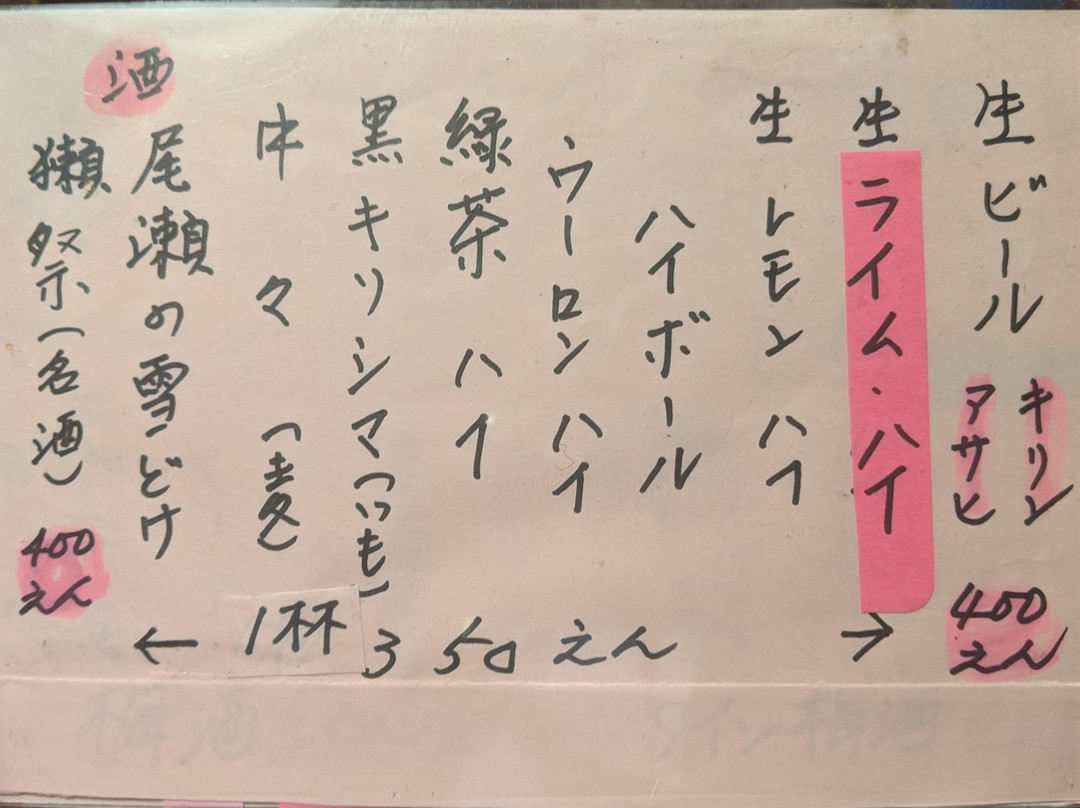 生ビール
キリン
アサヒ
400
えん
生ライム・ハイ
生レモンハイ
ハイボール
ウーロンハイ
緑茶ハイ
黒キリシマ(いも)
中々(麦)
酒
尾瀬の雪どけ
獺祭(名酒)
400
えん
← 1杯 350えん →